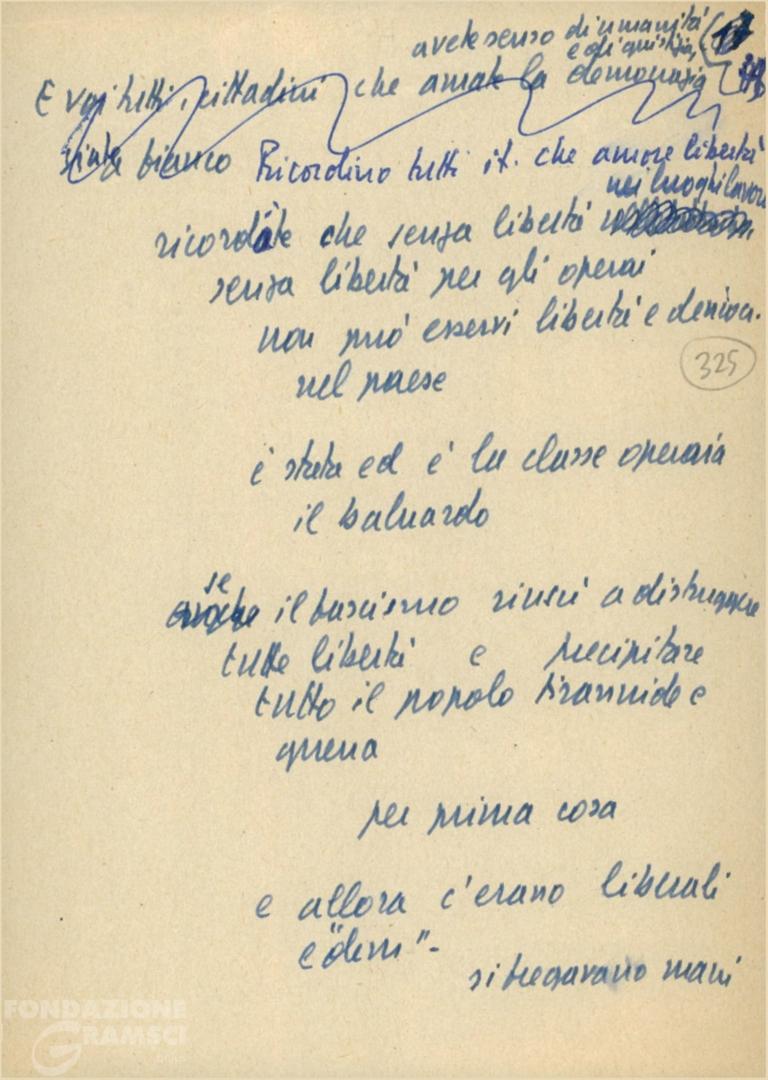 avete senso di umanità
e di giustizia,
E voi tutti, cittadini che amate la democrazia
siate bianco Ricordino tutti it. che amore libertà
nei luoghi lavoro
ricordate che senza libertà
senza libertà per gli operai
non può esservi libertà e democr.
nel paese
325
è stata ed è la classe operaia
il baluardo
se
il fascismo riuscì a distruggere
tutte libertà e precipitare
tutto il popolo tirannide e
guerra
per prima cosa
e allora c'erano liberali
e "dem"-
si fregavano mani
FONDAZIONE
GRAMSCI